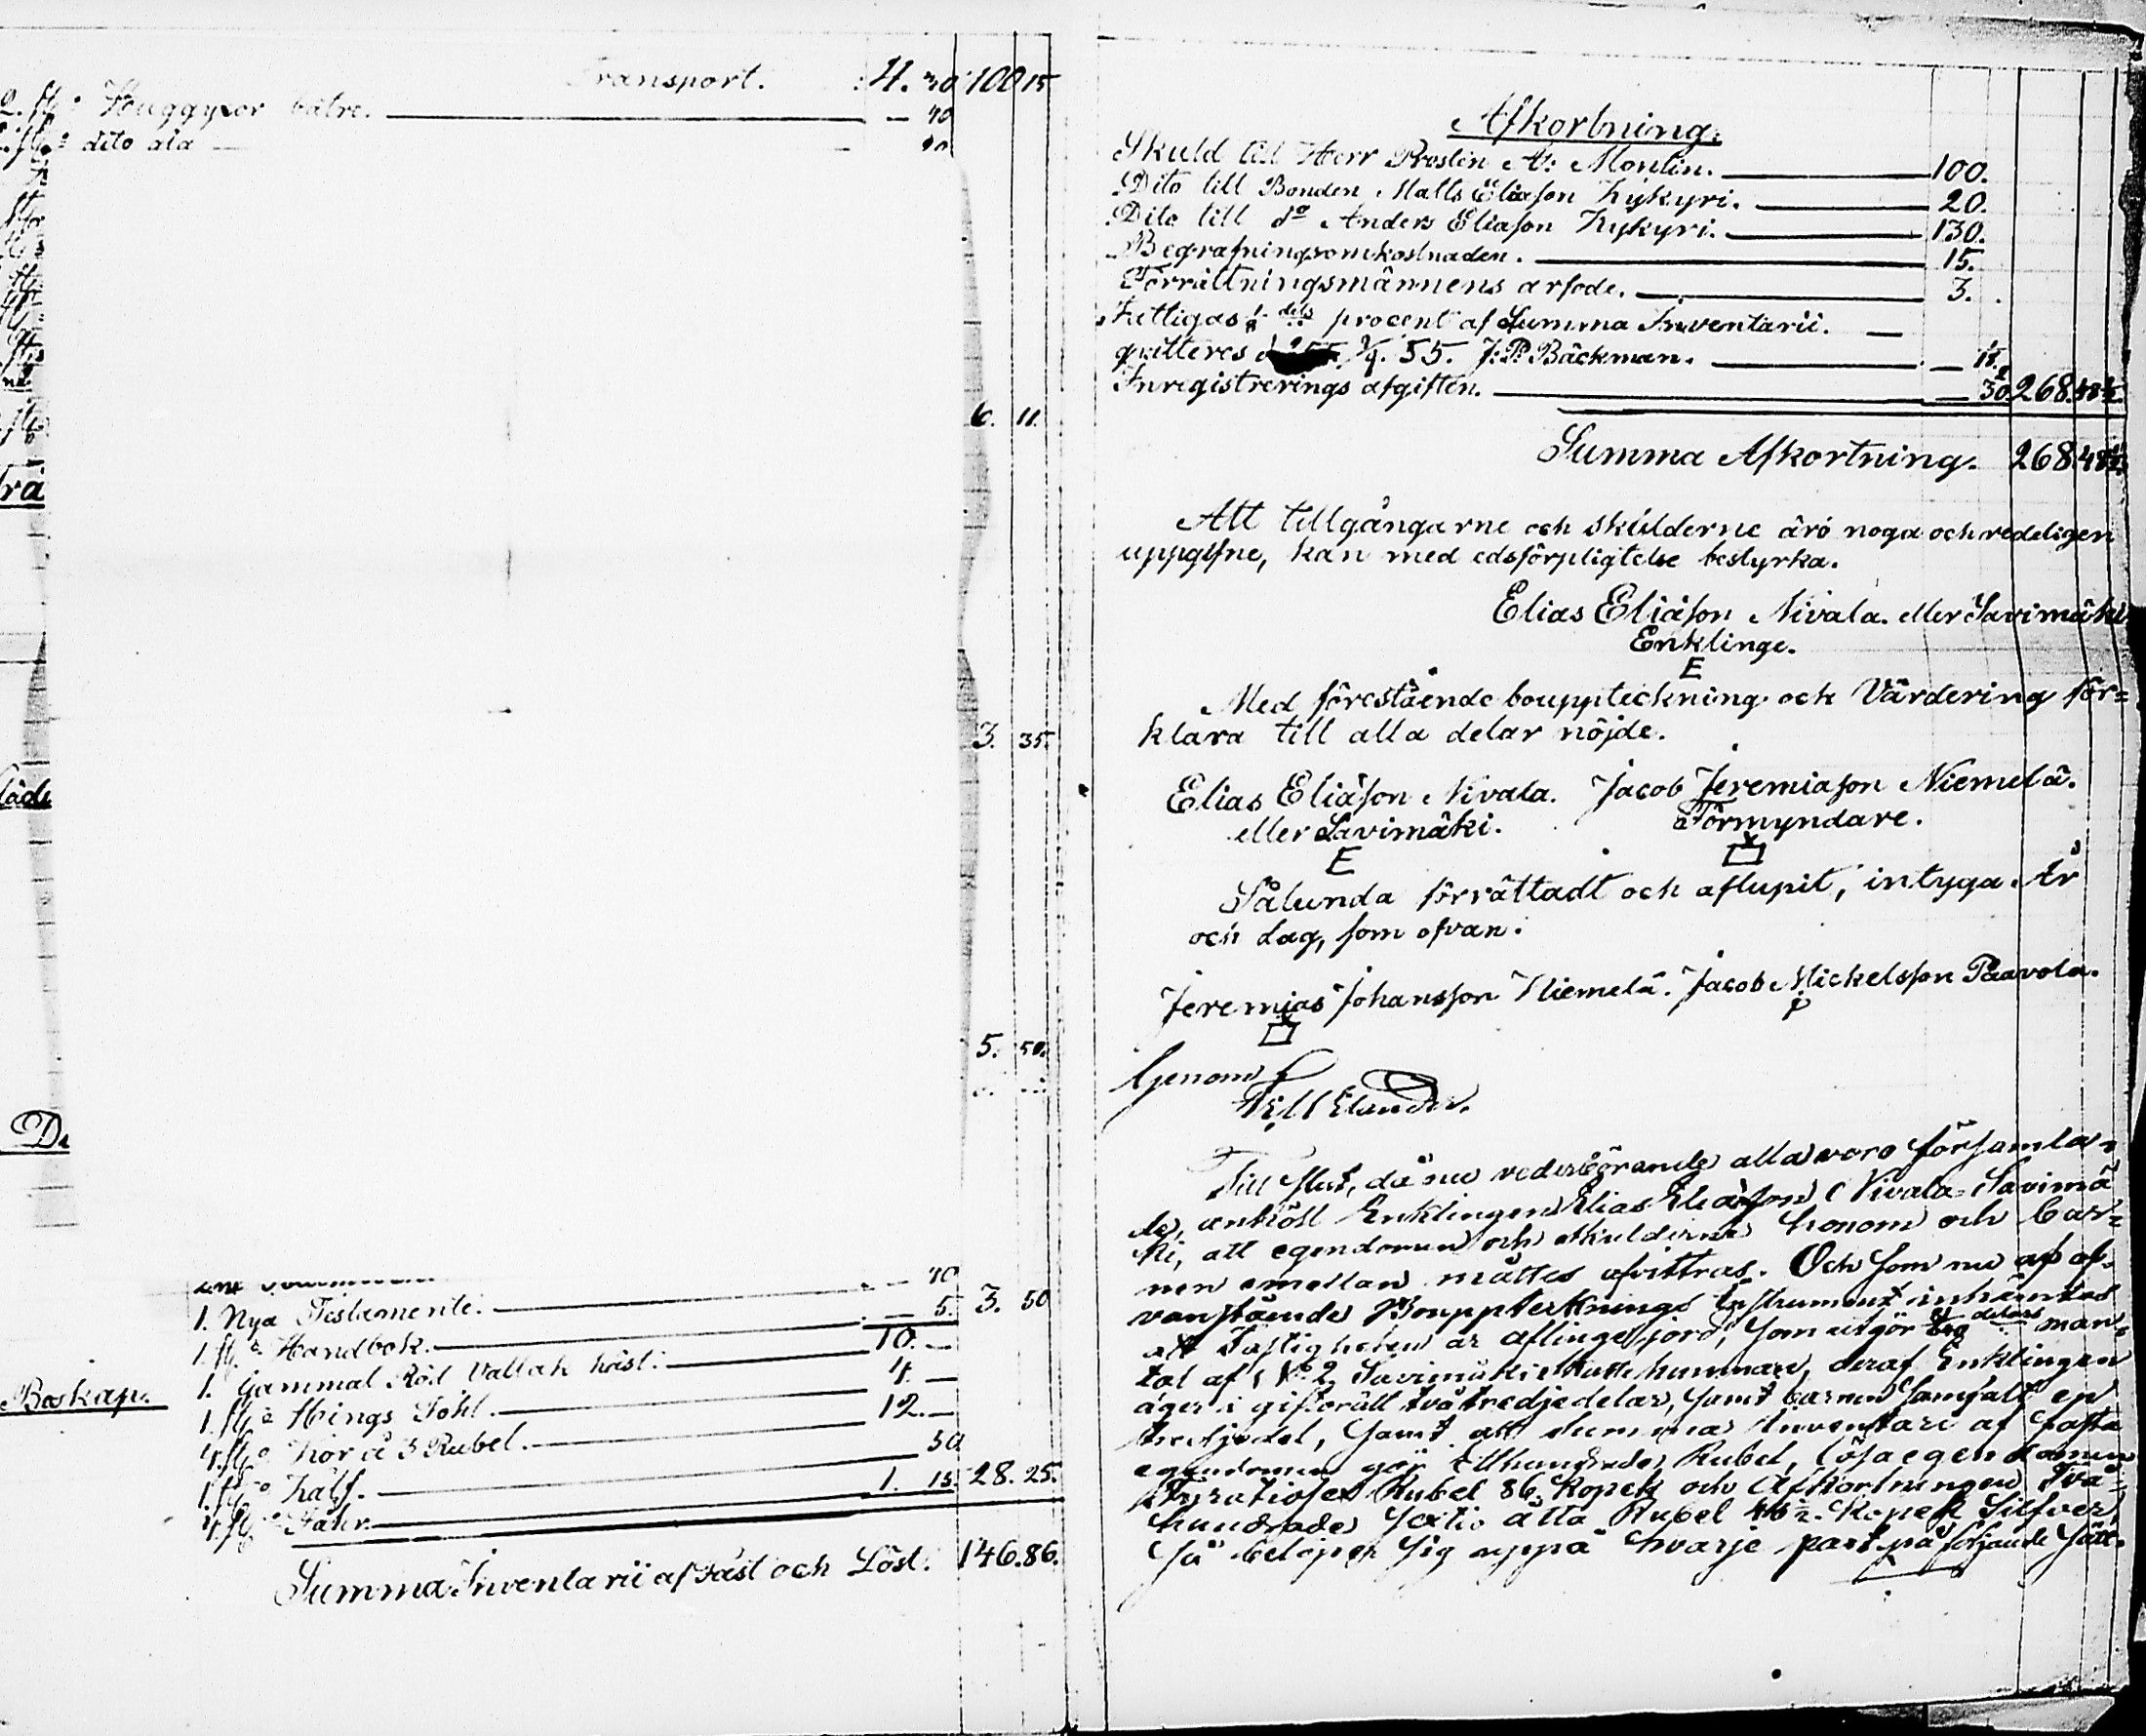 Transport. 4. 30 100 15
2. st:r Huggyxor bätre. — 40
dito — 
6. 11.
3. 35.
5. 50.
— 40
1. Nya Testamente. — 5. 3. 50
1. st: Handbok.
Boskap. 1. Gammal Röd Vallak häst. 10. —
1. st: Hings Fohl. 4. —
4. st: Kor á 3 Rubel. 12. —
1. st: Kalf. — 50
4. st: Fåhr. 1. 15. 28. 25.
Summa Inventarii af Fast och Löst. 146. 86.
Afkortning.
Skuld till Herr Prosten A: Montin. 100.
Dito till Bonden Matts Eliasson Kykyri. 20.
Dito till do Anders Eliasson Kykyri. 130.
Begrafningsomkostnaden. 15.
Förrättningsmännens arfode. 3.
Fattigas 1/8 dels procent af Summa Inventarii.
qvitteras 55. J: P: Bäckman. — 18½
Inregistrerings afgiften. — 30 268. 48½
Summa Afkortning. 268. 48½
Att tillgångarne och skulderne äro noga och redeligen
uppgifne, kan med edsförpligtelse bestyrka.
Elias Eliasson Nivala. eller Savimäki
Enklinge.
E
Med förestående bouppteckning och Värdering för=
klara till alla delar nöjde.
Elias Eliasson Nivala. Jacob Jeremiasson Niemelä.
eller Savimäki. Förmyndare.
E
Sålunda förrättadt och aflupit, intyga. År
och dag, som ofvan.
Jeremias Johansson Niemelä. Jacob Mickelsson Paavola.
P
Genom
Elander.
Till slut, då nu vederbörande alla voro församla=
de, anhöll Enklingen Elias Eliasson Nivala Savimä
ki, att egendomen och skulderne honom och bar=
nen emellan måttes afvittras. Och som nu af of=
vanstående Bouppteknings Instrument inhämtas
att Fastigheten är aflinge jord, som utgör delars man=
tal af No 2 Savimäki hemman, deraf Enklingen
äger i giftorätt två tredjedelar, samt barnen samfält en
tredjedel, samt att summa Inventarii af fasta
egendomen gör Etthundrade Rubel, lösa egendomen
fyratiosex Rubel 86. Kopek och Afkortningen två=
hundrade sextio åtta Rubel 48½. Kopek Silfver,
så belöper sig uppå hvarje part på följande sätt.